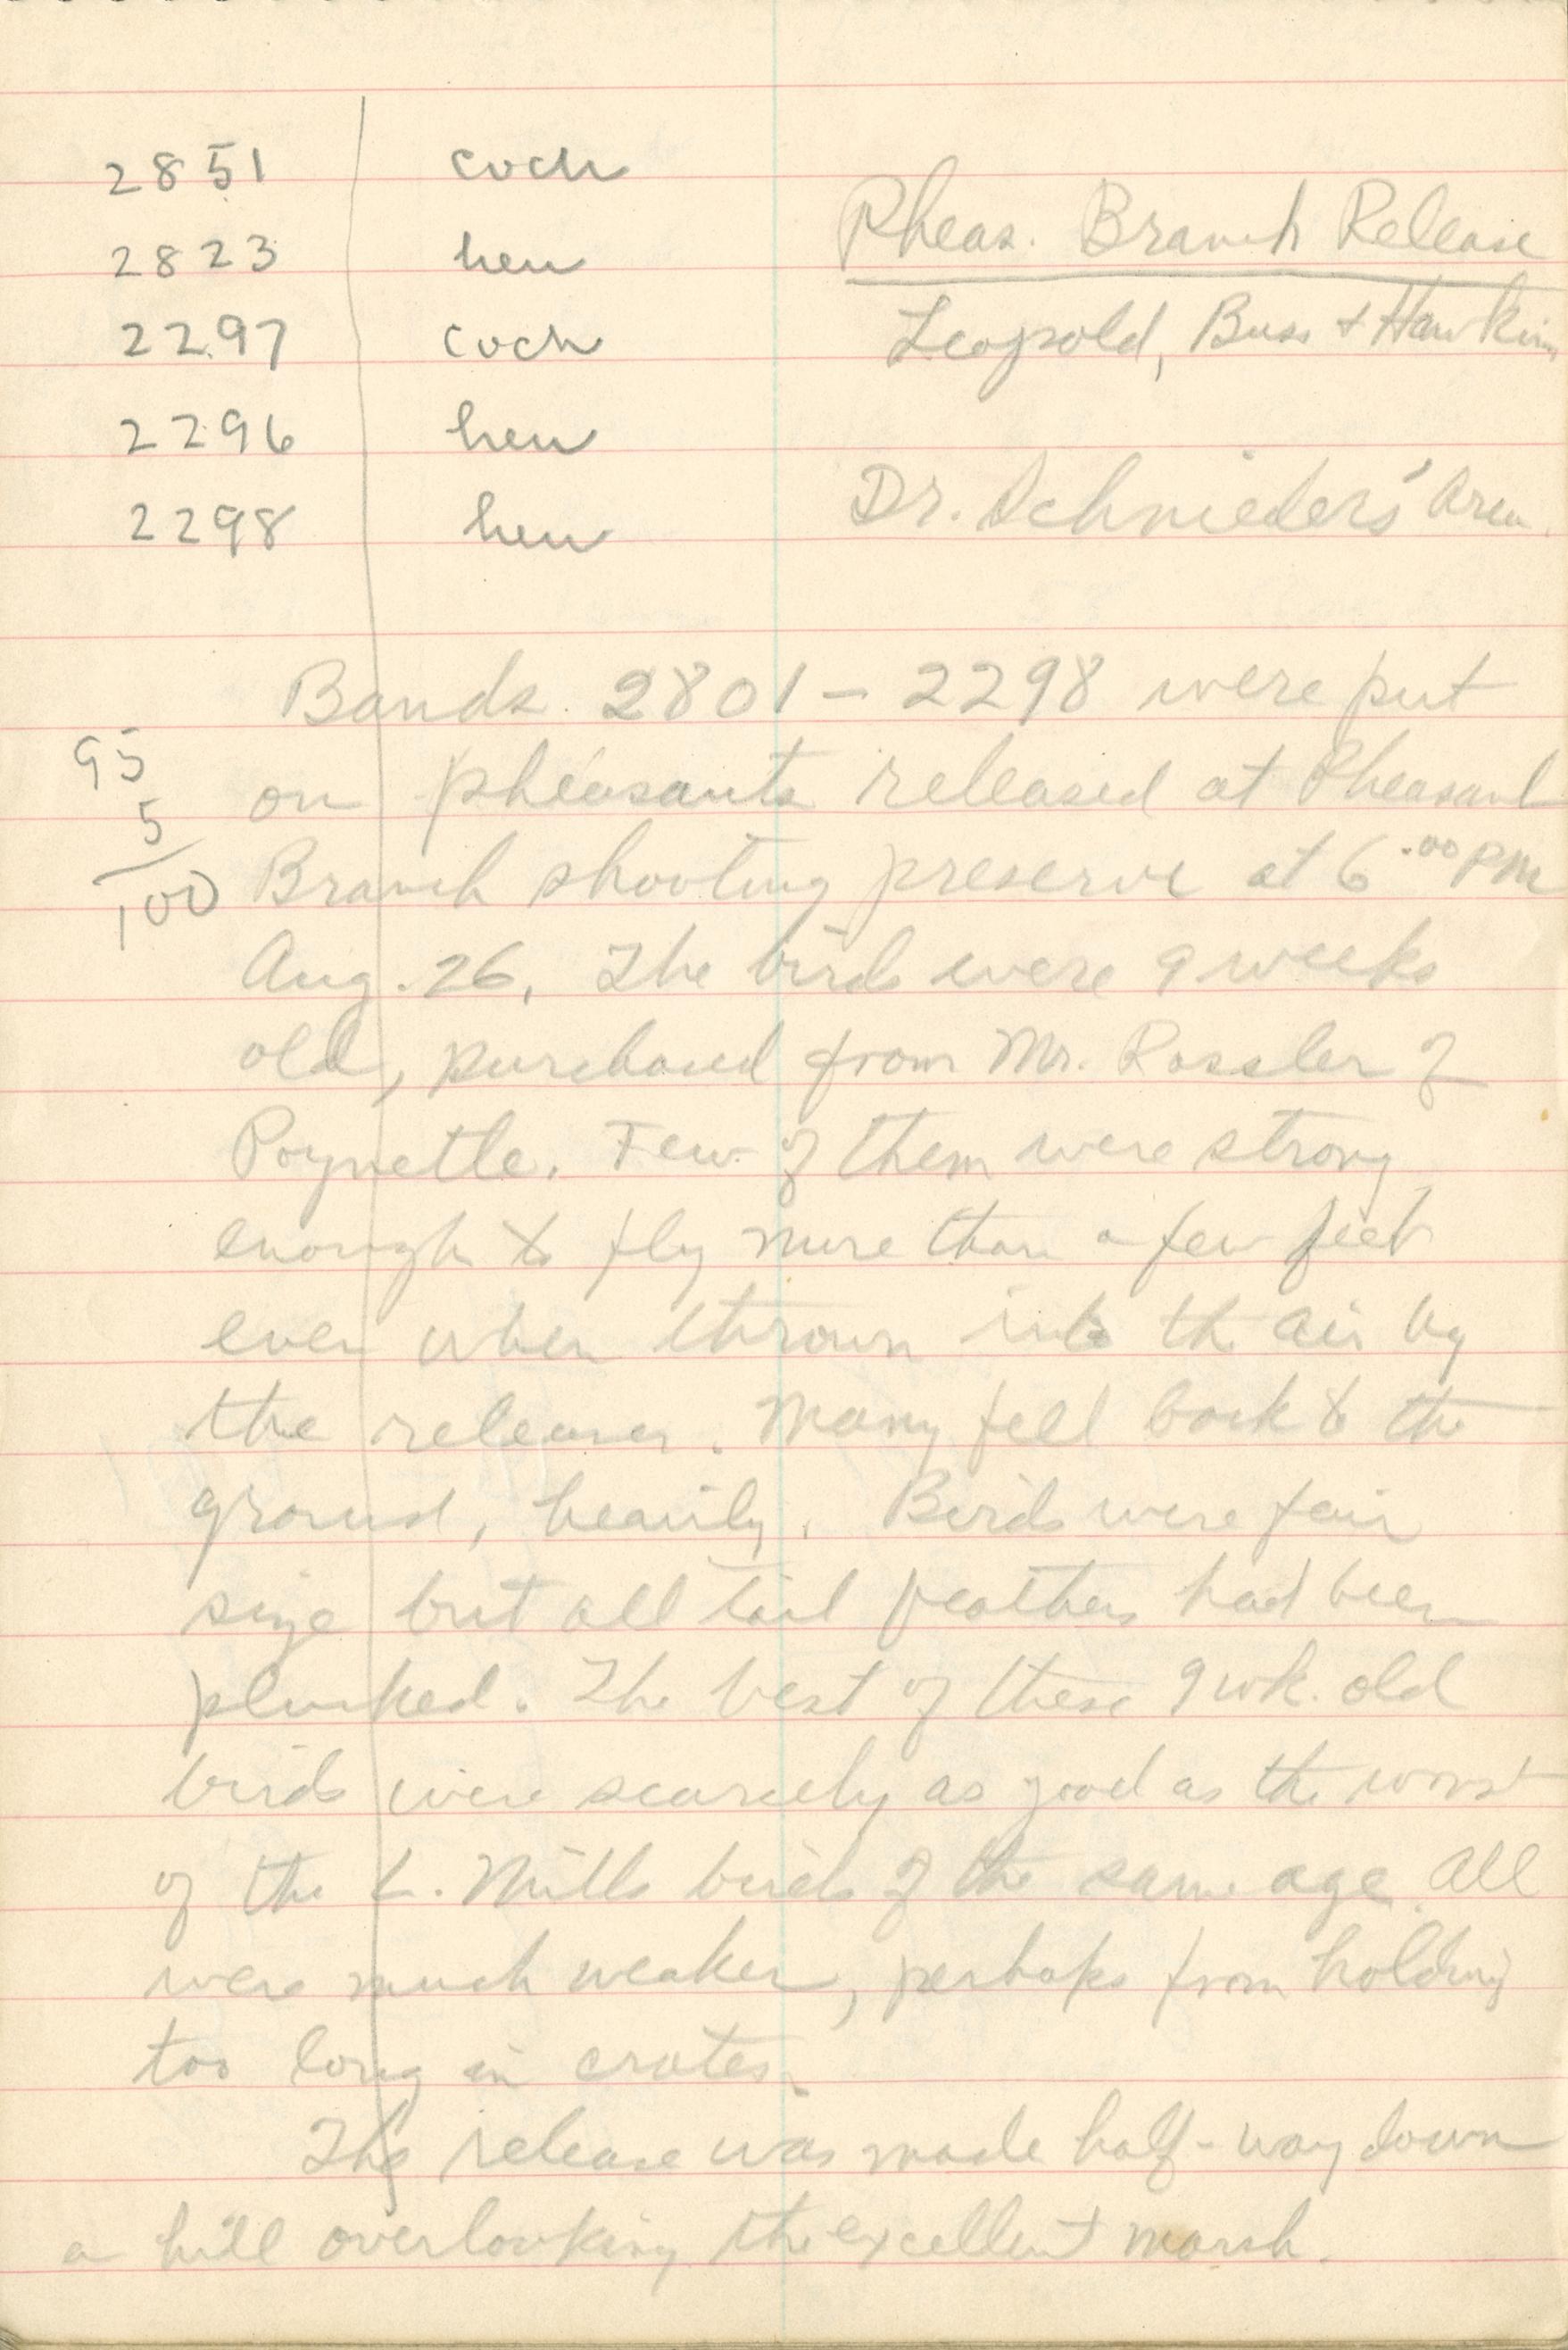 2851 cock
2823 hen
2297 cock
2296 hen
2298 hen
Pheas. Branch Release
Leopold, Buss + Hawkins
Dr. Schnieders' Area.
Bands 2801 - 2298 were put
on pheasants released at Pheasant
Branch shooting preserve at 6:00 PM
Aug. 26. The birds were 9 weeks
old, purchased from Mr. Rossler of
Poynette. Few of them were strong
enough to fly more than a few feet
even when thrown into the air by
the releaser. Many fell back to the
ground, heavily. Birds were fair
size but all tail feathers had been
plucked. The best of these 9 wk. old
birds were scarcely as good as the worst
of the L. Mills birds of the same age. All
were much weaker, perhaps from holding
too long in crates.
The release was made half-way down
a hill overlooking the excellent marsh.
95
5
100